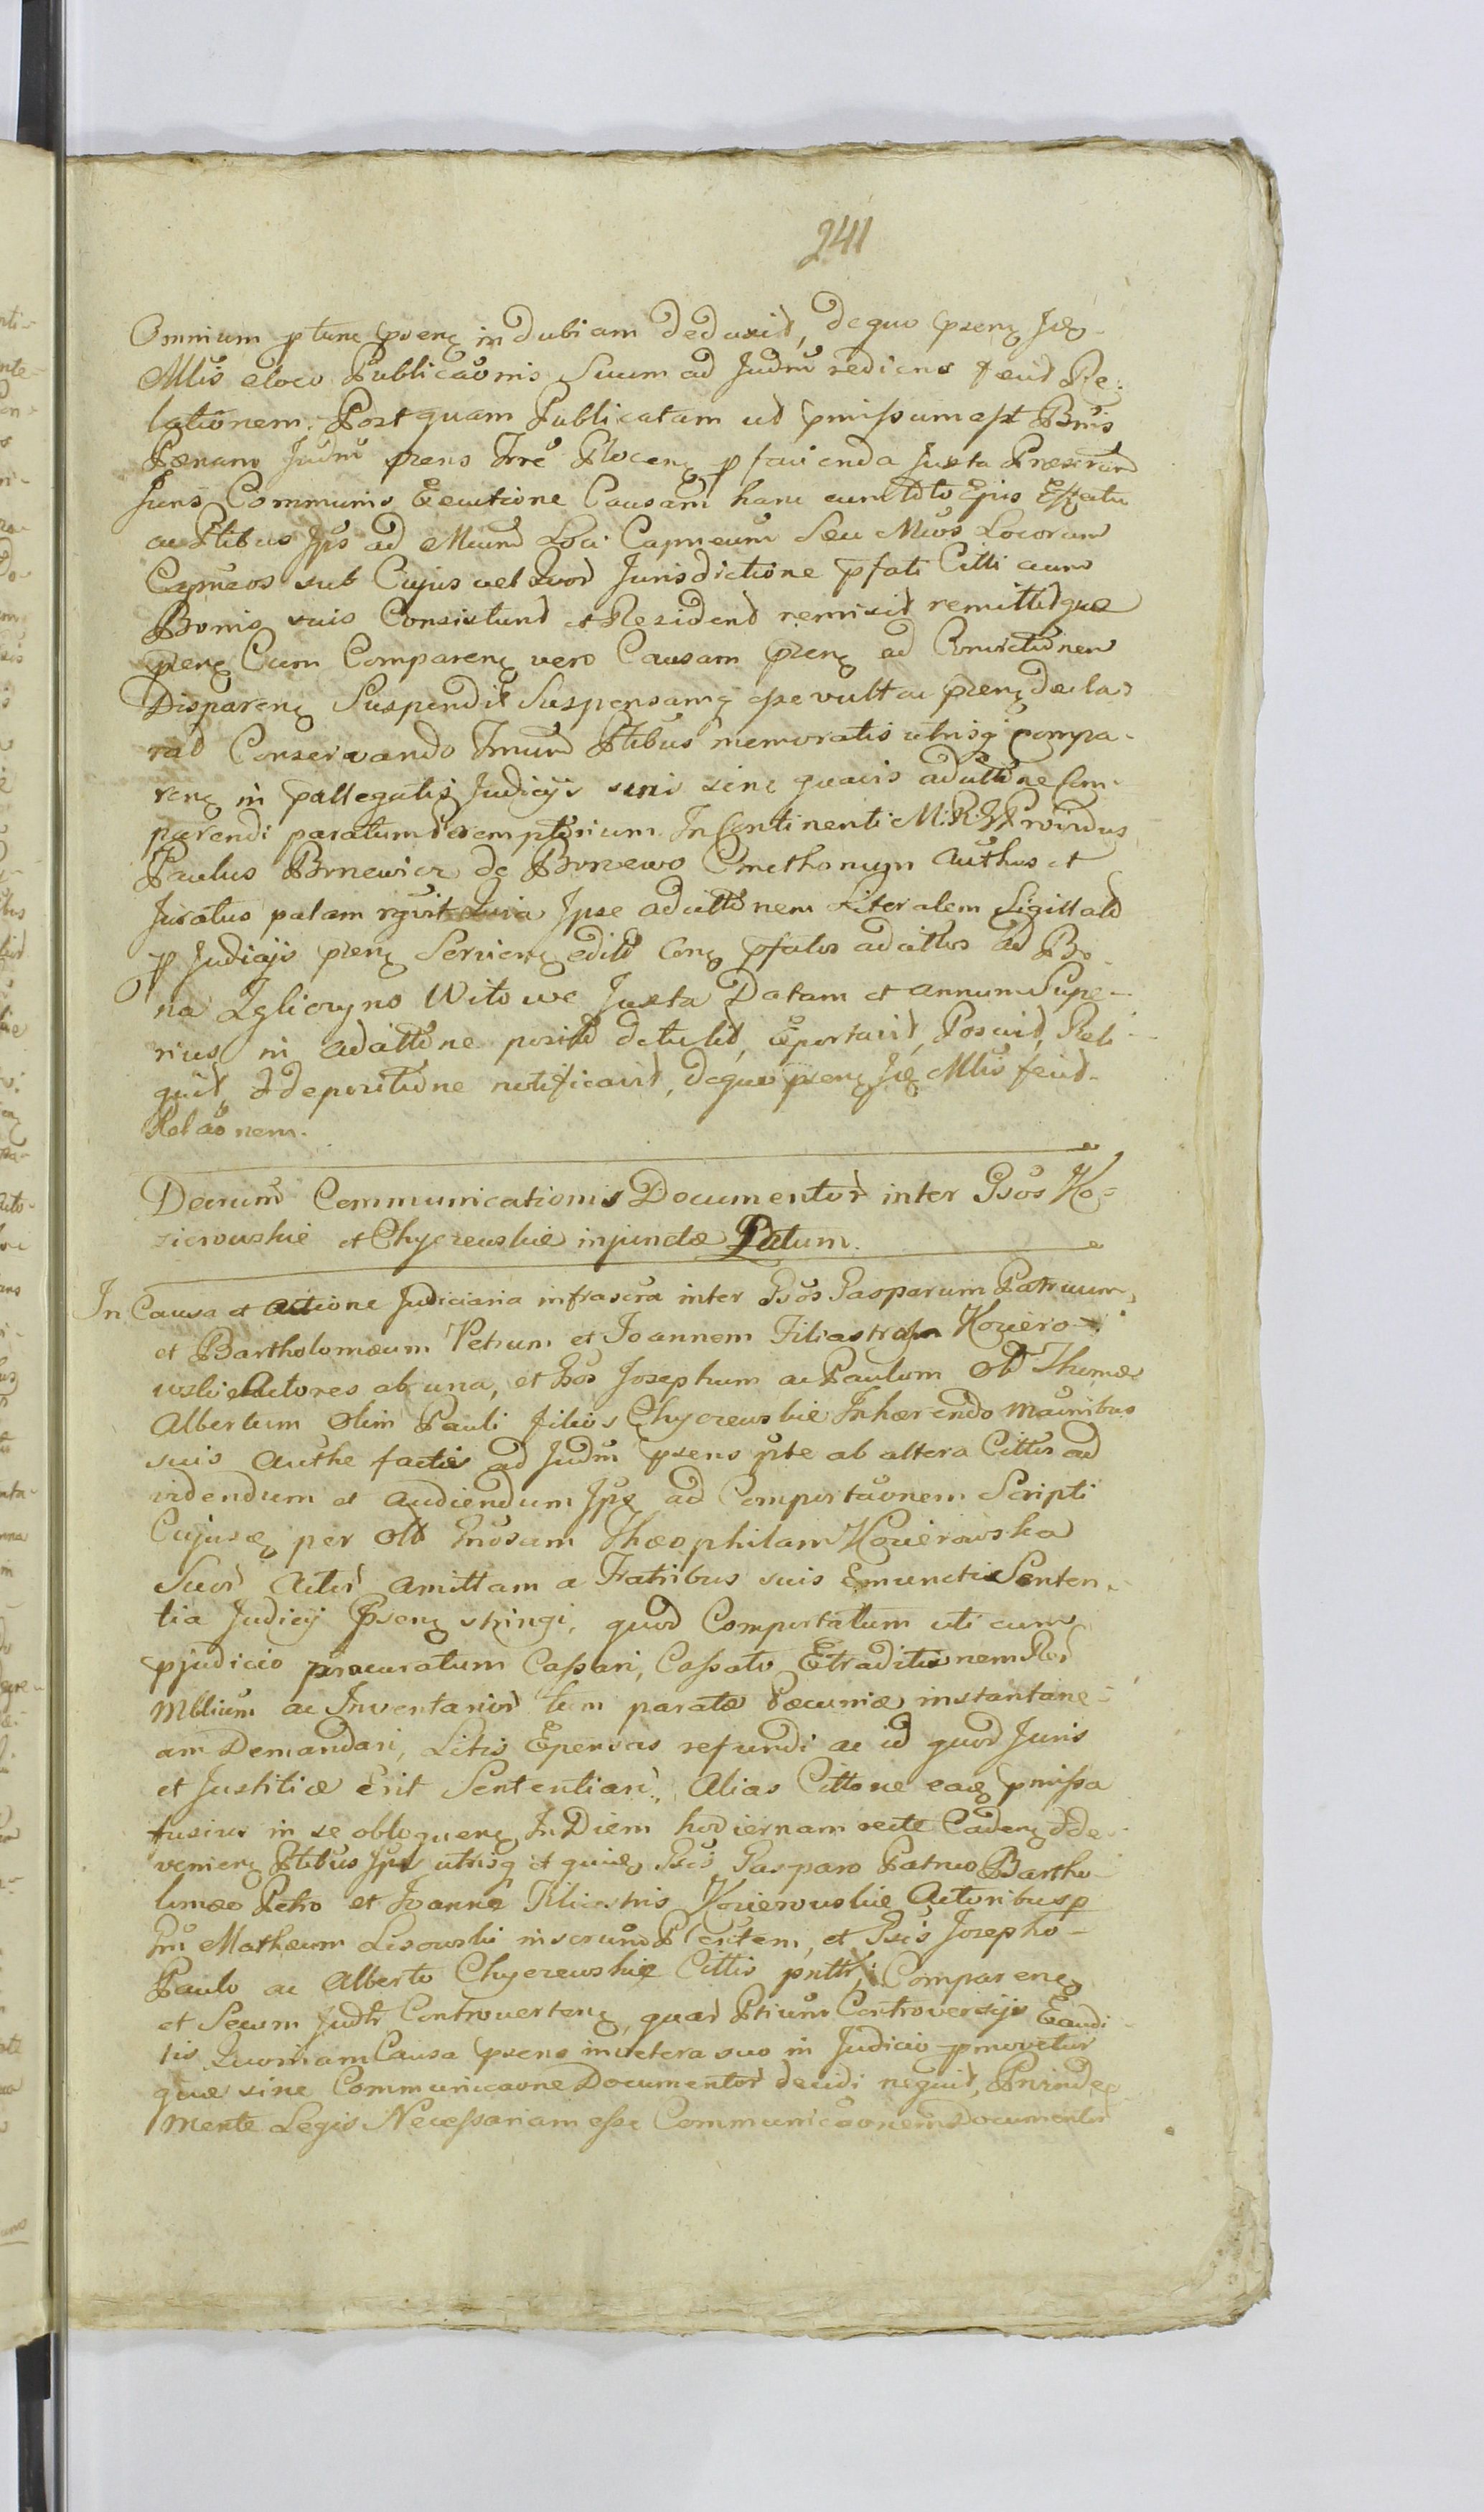 241
Omnium p tunc psenq in dubiam deduxit, dequo psenq Jg
Mlis eloco Publicaõnis Suum ad Judm̃ rediens fecit Re-
lationem. Postquam Publicatam ut pmissum est Bnis
Pænam Judm̃ psens Trre Plocenq p facienda Juxta Præscrum
Juris Communis Eecutione Causam hanc cum toto Ejus Effectu
ac Ptibus Jps ad Mcum Loci Capneum Seu Mcos Locorum
Capneos sub Cujus vel Quor Jurisdictione pfati Citti cum
Bonis suis Consistunt et Resident remisit remittitque
psenq Cum Comparenq vero Causam psenq ad Convictionem
Disparenq Suspendit Suspensamq esse vult ac psenq decla-
rat Conservando Tmum Ptibus memoratis utrisq compa-
renq in pallegatis Judicijs sine quavis adcittone Com-
parendi paratum peremptorium. In Continenti M: R: Prvirdus
Paulus Bonewicz de Bonewo Cmethonum Authus et
Juratus palam rgvit Quia Ipse adcittonem Literalem Sigillatã
p Judicijs psenq Servienq editã Conq pfatos adcittos ad Bo-
na Zgliczyno Witowe Juxta Datam et annum Supe-
rius in adcittone positã detulit, Eportavit, Posuit, Reli-
quit, Et depositione notificavit, dequo psenq Jg Mlis fecit
Relaõnem.
Decrum Communicationis Documentor inter Gsos Ko-
zierowskie et Chyczewskie injunctæ Latum.
In Causa et actione Judiciaria infrascra inter Gsos Gasparum Patruum,
et Bartholomæum Petrum et Joannem Filiastros Koziero-
wskie Actores ab una, et Gsos Josephum ac Paulum Olt Thomæ
Albertum Olim Pauli filios Chyczewskie Inhærendo Mainibus
suis Authe factis ad Judm̃ psens pte ab altera Cittos ad
videndum et audiendum Jps ad Comportaõnem Scripti
Cujusq per Olt Gnosam Theophilam Kozierowska
Suor Actor Amittam a Fratribus suis Emuncti Senten-
tia Judicij Psenq stringi, quod Comportatum uti cum
pjudicio procuratum Cassari, Cassato Etraditionem Rer
Mblium ac Inventarior tum paratæ Pecuniæ instantane-
am Demandari, Litis Epensas refundi ac id quod Juris
et Justitiæ Erit Sententiari. Alias Cittone eaq pmissa
fusius in se obloquenq In Diem hodiernam recte Cadenq et de-
venienq Ptibus Jps utrisq et quiq Gsis Gasparo Patruo Bartho-
lomæo Petro et Joanne Filiastris Kozierowskie Actoribus p
Gm Mathæum Lisowski inscrum Plentem, et Gsis Josepho
Paulo ac Alberto Chyczewskie Cittis pnttr Comparenq
et Secum Judtr Controvertenq, quar Ptium Controversijs Eaudi-
tis Quoniam Causa psens invetera suo in Judicio pmovetur
quæ sine Communicaone Documentor decidi nequit, Proinde
Mente Legis Necessariam esse Communicaonem Documentor